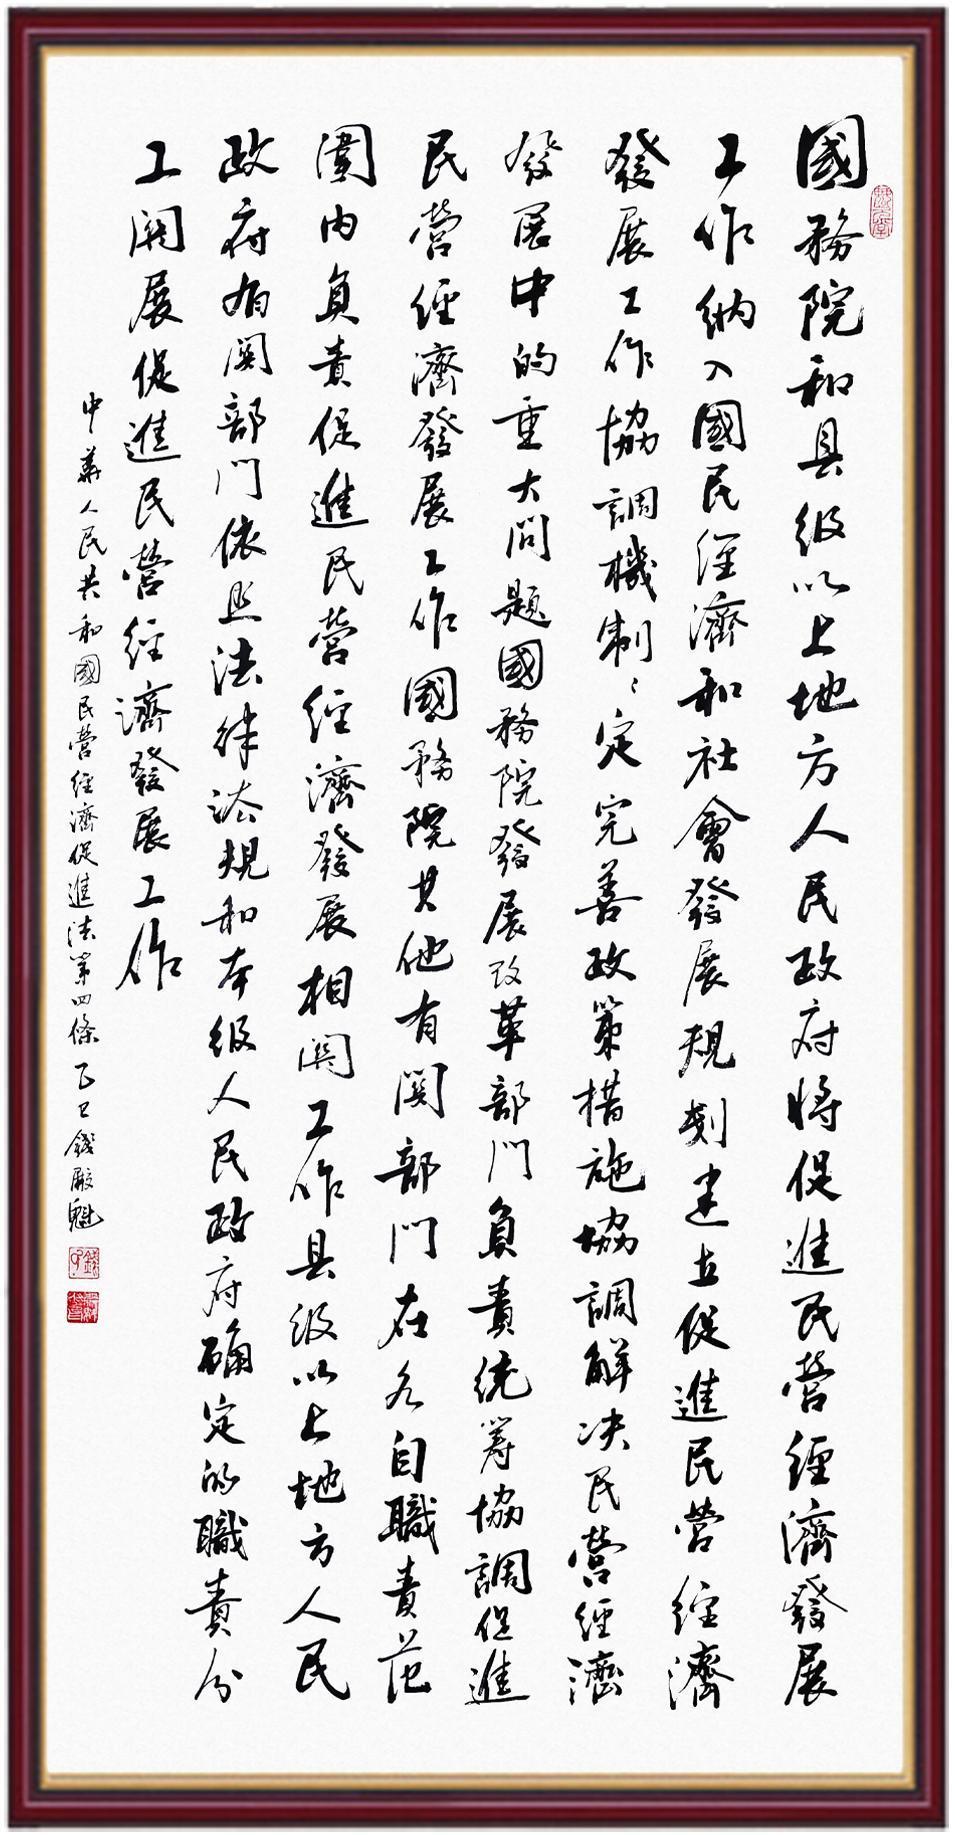 國務院和县级以上地方人民政府将促進民营經濟發展
工作纳入國民經濟和社會發展規划建立促進民营經濟
發展工作協調機制制定完善政策措施協調解决民营經濟
發展中的重大问題國務院發展改革部门負責统筹協調促進
民营經濟發展工作國務院其他有関部门在各自職責范
圍内負責促進民营經濟發展相関工作县级以上地方人民
政府有関部门依照法律法規和本级人民政府确定的職責分
工開展促進民营經濟發展工作
中華人民共和國民营經濟促進法第四條乙巳錢殿魁